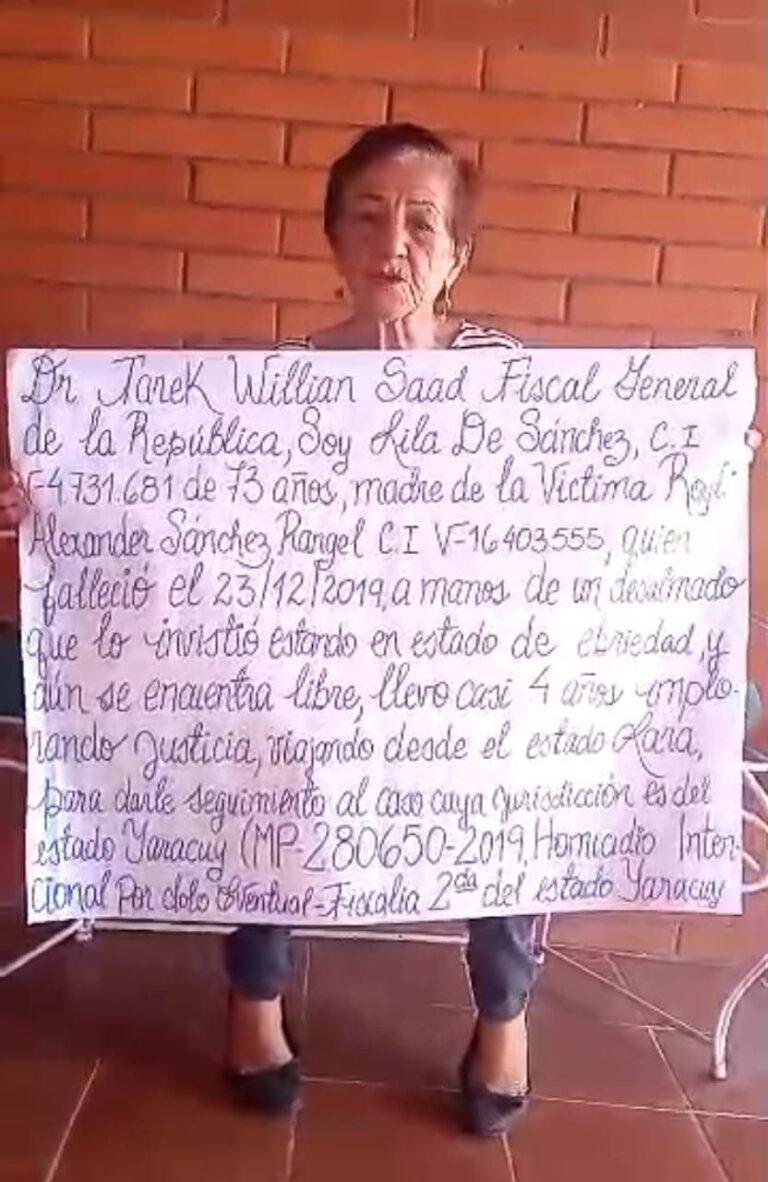 Dr Tarek Willian Saad Fiscal General
de la República, Soy Lila De Sánchez, C.I
V-4.731.681 de 73 años, madre de la Victima
Alexander Sánchez Rangel C.I V-16403555, quien
falleció el 23/12/2019, a manos de un desalmado
que lo invistió estando en estado de ebriedad, y
aún se encuentra libre, llevo casi 4 años implo-
rando Justicia, viajando desde el estado Lara,
para darle seguimiento al caso cuya jurisdicción es del
estado Yaracuy (MP-280650-2019, Homicidio Inten-
cional Por dolo Eventual-Fiscalia 2da del estado Yaracuy